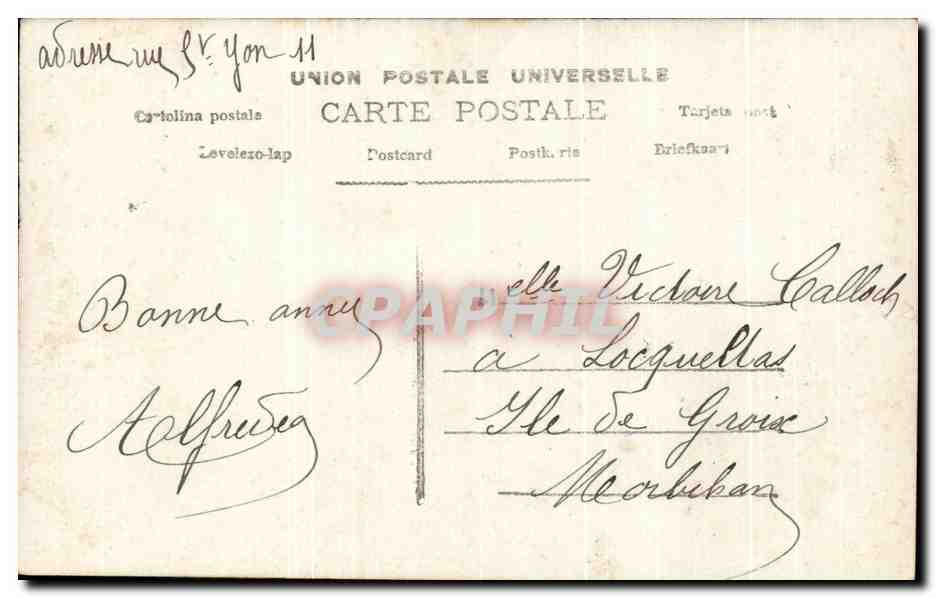 adresse rue St Yon 11
UNION POSTALE UNIVERSELLE
CARTE POSTALE
Cartolina postale
Tarjeta
Levelezo-lap Postcard Briefkaart
Bonne année
Alfred
elle Victoire Calloch
à Locqueltas
Ile de Groix
Morbihan
CPAPHIL